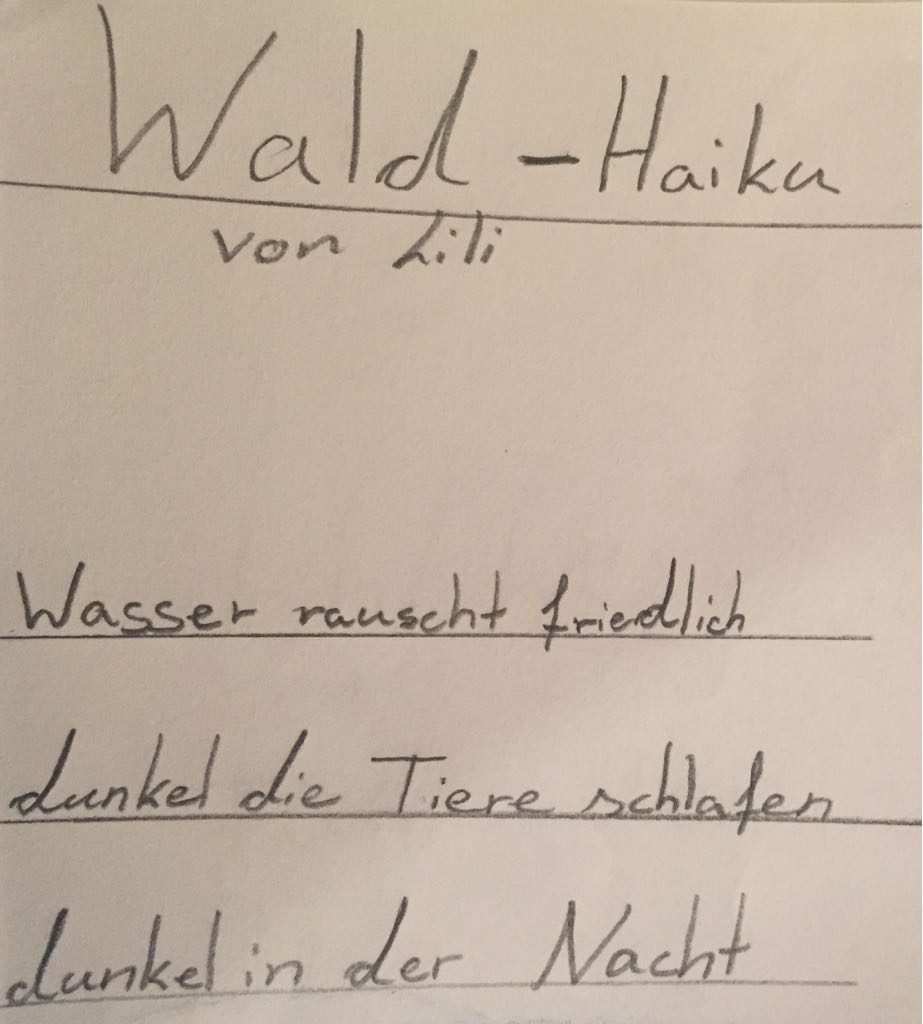 Wald - Haiku
von Lili
Wasser rauscht friedlich
dunkel die Tiere schlafen
dunkel in der Nacht